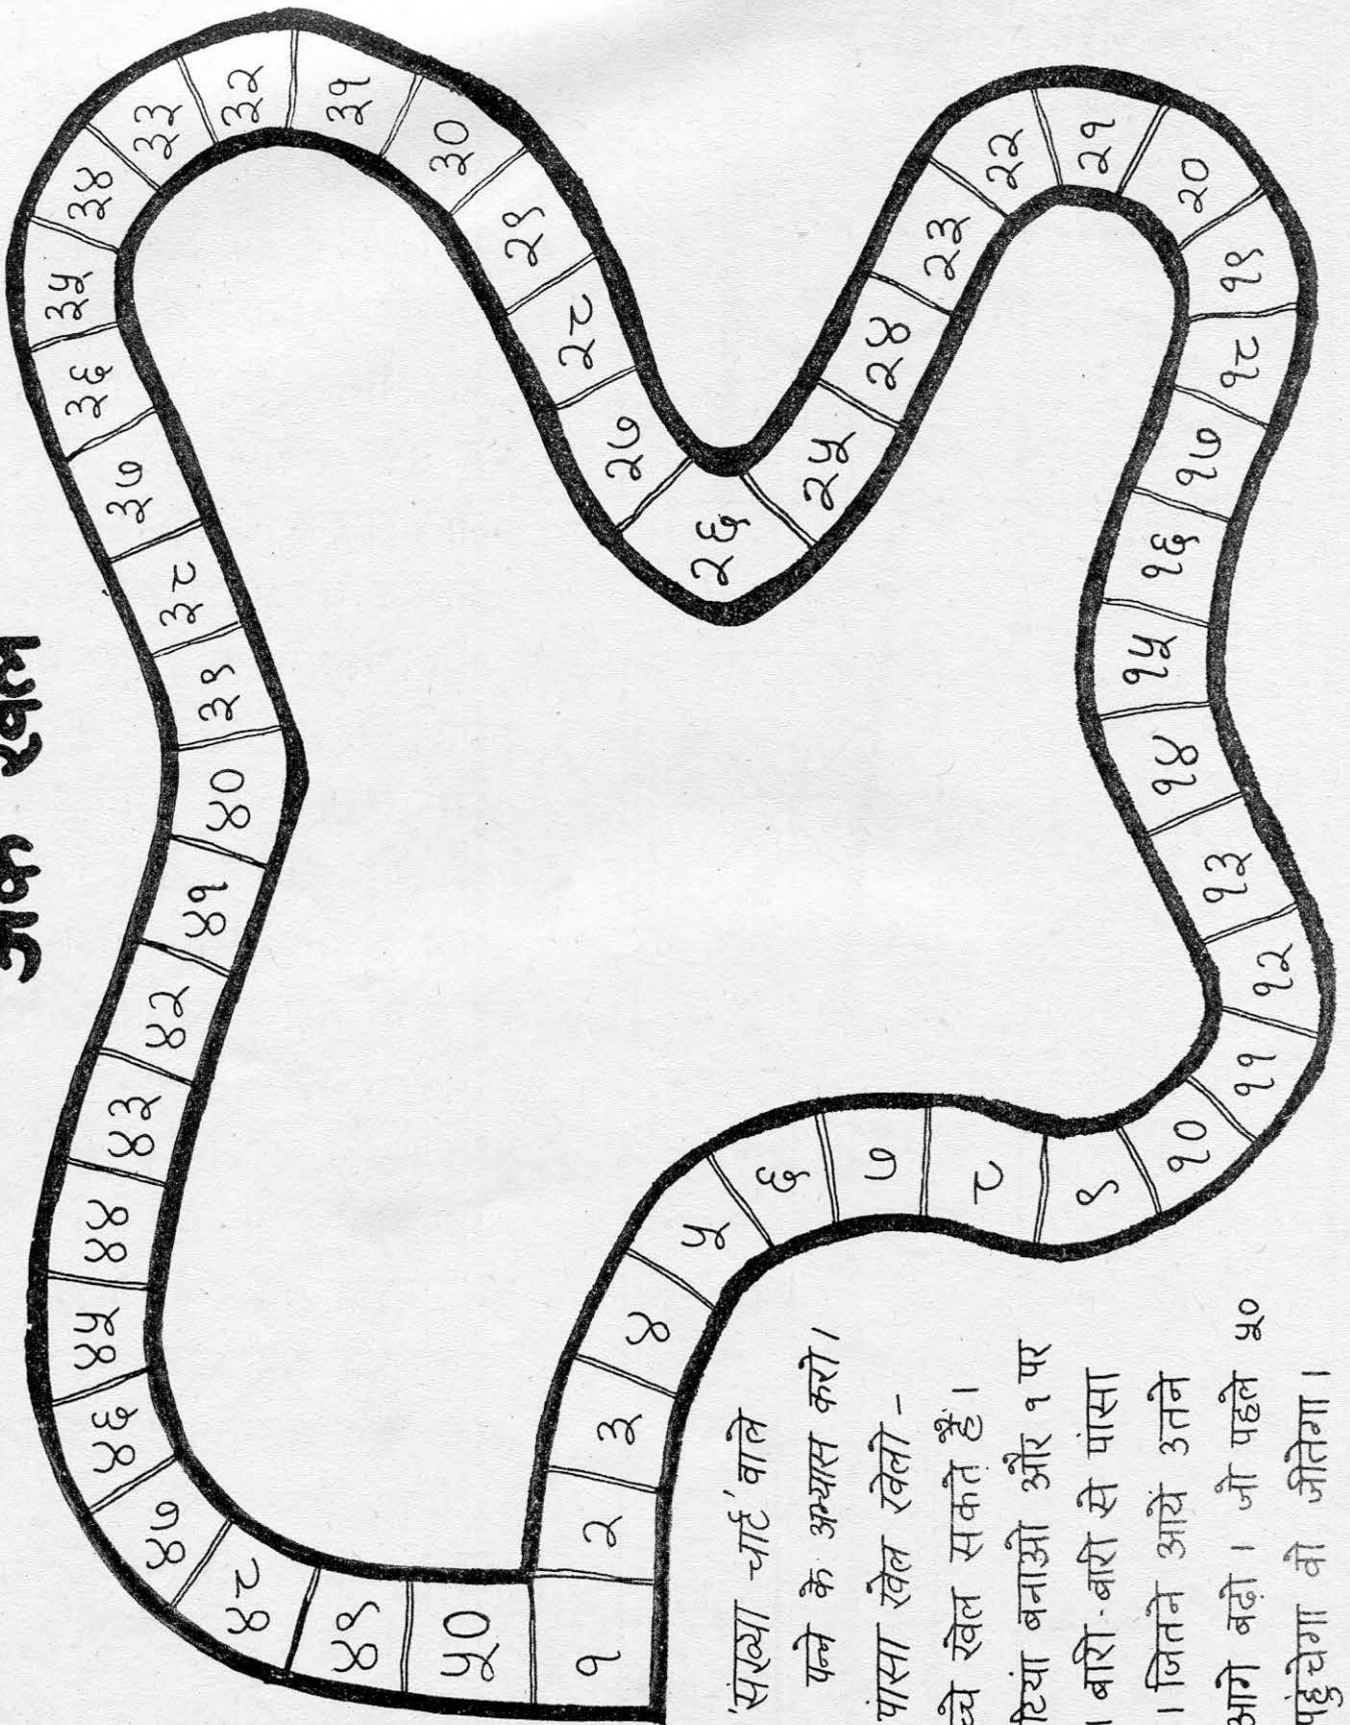 अंक खेल
१
२
३
४
५
६
७
८
९
१०
११
१२
१३
१४
१५
१६
१७
१८
१९
२०
२१
२२
२३
२४
२५
२६
२७
२८
२९
३०
३१
३२
३३
३४
३५
३६
३७
३८
३९
४०
४१
४२
४३
४४
४५
४६
४७
४८
४९
५०
'संख्या चार्ट' वाले
पन्ने के अभ्यास करो।
पांसा खेल खेलो -
च्चे खेल सकते हैं।
टियां बनाओ और १ पर
। बारी-बारी से पांसा
। जितने आयें उतने
आगे बढ़ो। जो पहले ५०
पहुंचेगा वो जीतेगा।